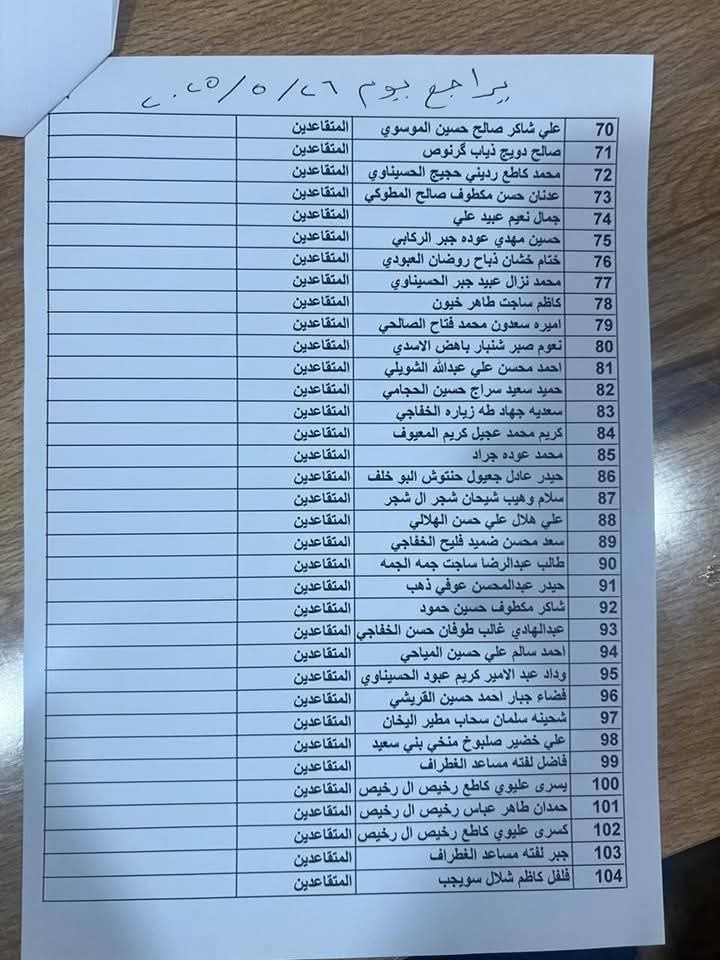 يراجع يوم ٢٠٢٥/٥/٢٦
70 علي شاكر صالح حسين الموسوي المتقاعدين
71 صالح دويج ذياب گرنوص المتقاعدين
72 محمد كاطع رديني حجيج الحسيناوي المتقاعدين
73 عدنان حسن مكطوف صالح المطوكي المتقاعدين
74 جمال نعيم عبيد علي المتقاعدين
75 حسين مهدي عوده جبر الركابي المتقاعدين
76 ختام خشان ذباح روضان العبودي المتقاعدين
77 محمد نزال عبيد جبر الحسيناوي المتقاعدين
78 كاظم ساجت طاهر خيون المتقاعدين
79 اميره سعدون محمد فتاح الصالحي المتقاعدين
80 نعوم صبر شنبار باهض الاسدي المتقاعدين
81 احمد محسن علي عبدالله الشويلي المتقاعدين
82 حميد سعيد سراج حسين الحجامي المتقاعدين
83 سعديه جهاد طه زياره الخفاجي المتقاعدين
84 كريم محمد عجيل كريم المعيوف المتقاعدين
85 محمد عوده جراد المتقاعدين
86 حيدر عادل جعيول حنتوش البو خلف المتقاعدين
87 سلام وهيب شيحان شجر ال شجر المتقاعدين
88 علي هلال علي حسن الهلالي المتقاعدين
89 سعد محسن ضميد فليح الخفاجي المتقاعدين
90 طالب عبدالرضا ساجت جمه الجمه المتقاعدين
91 حيدر عبدالمحسن عوفي ذهب المتقاعدين
92 شاكر مكطوف حسين حمود المتقاعدين
93 عبدالهادي غالب طوفان حسن الخفاجي المتقاعدين
94 احمد سالم علي حسين المياحي المتقاعدين
95 وداد عبد الامير كريم عبود الحسيناوي المتقاعدين
96 فضاء جبار احمد حسين القريشي المتقاعدين
97 شحينه سلمان سحاب مطير اليخان المتقاعدين
98 علي خضير صلبوخ منخي بني سعيد المتقاعدين
99 فاضل لفته مساعد الغطراف المتقاعدين
100 يسرى عليوي كاطع رخيص ال رخيص المتقاعدين
101 حمدان طاهر عباس رخيص ال رخيص المتقاعدين
102 كسرى عليوي كاطع رخيص ال رخيص المتقاعدين
103 جبر لفته مساعد الغطراف المتقاعدين
104 فلفل كاظم شلال سويجب المتقاعدين